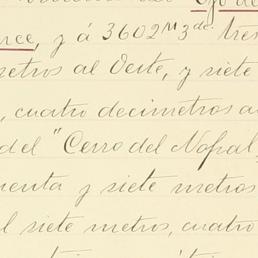 Ojo de
rce, y á 3602 M 3 de tres
metros al Oeste, y siete
, cuatro decimetros a
del "Cerro del Nopal,
uenta y siete metros
l siete metros, cuatro